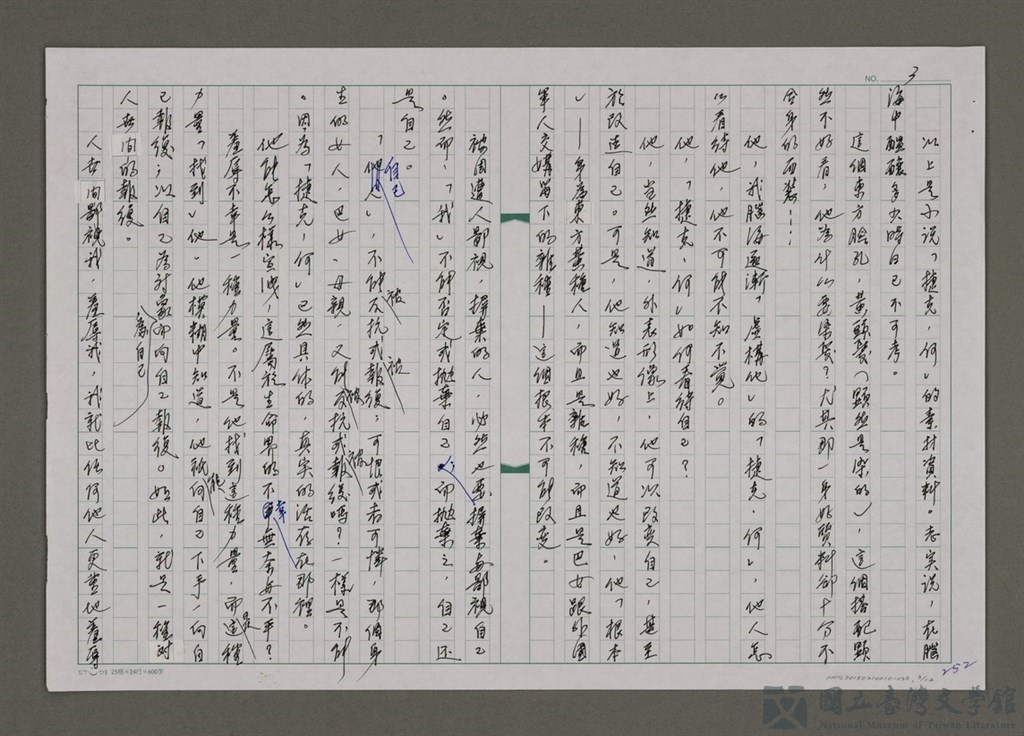 NO. 3
以上是小說「捷克,何」的素材資料。老實說,在腦
海中醞釀多少時自己不可考。
這個東方臉孔,黃頭髮(顯然是染的),這個搭配顯
然不好看,他為什么要染髮?尤其那一身好質料卻十分不
合身的西裝……
他,我腦海逐漸「虛構化」的「捷克,何」,他人怎
么看待他,他不可能不知不覺。
他,「捷克,何」如何看待自己?
他,当然知道,外表形像上,他可以改变自己,甚至
於改造自己。可是,他知道也好,不知道也好,他「根本
」——身為東方黃種人,而且是雜種,而且是巴女跟外國
軍人交媾留下的雜種——這個根本不可能改变。
被周遭人鄙視,摒棄的人,必然也要摒棄与鄙視自己
。然而,「我」不能否定或抛棄自己而抛棄之,自己还
是自己。
「他人」,不能反抗或報復;可恨或者可憐,那個身
自己
被
被
在的女人,巴女、母親,又能反抗或報復嗎?一樣是不能
被
被
。因為「捷克,何」已然具体的,真实的活存在那裡。
他能怎么樣宣洩,這屬於生命界的不幸無奈与不平?
羞辱不幸是一種力量。不是他找到這種力量,而是這種
力量「找到」他。他模糊中知道,他祇能向自己下手,向自
己報復;以自己為对象而向自己報復。如此,就是一種对
為自己
人世间的報復。
人世间鄙視我,羞辱我,我就比任何他人更重地羞辱
252
25格×24行=600字
國立臺灣文學館
National Museum of Taiwan Literature